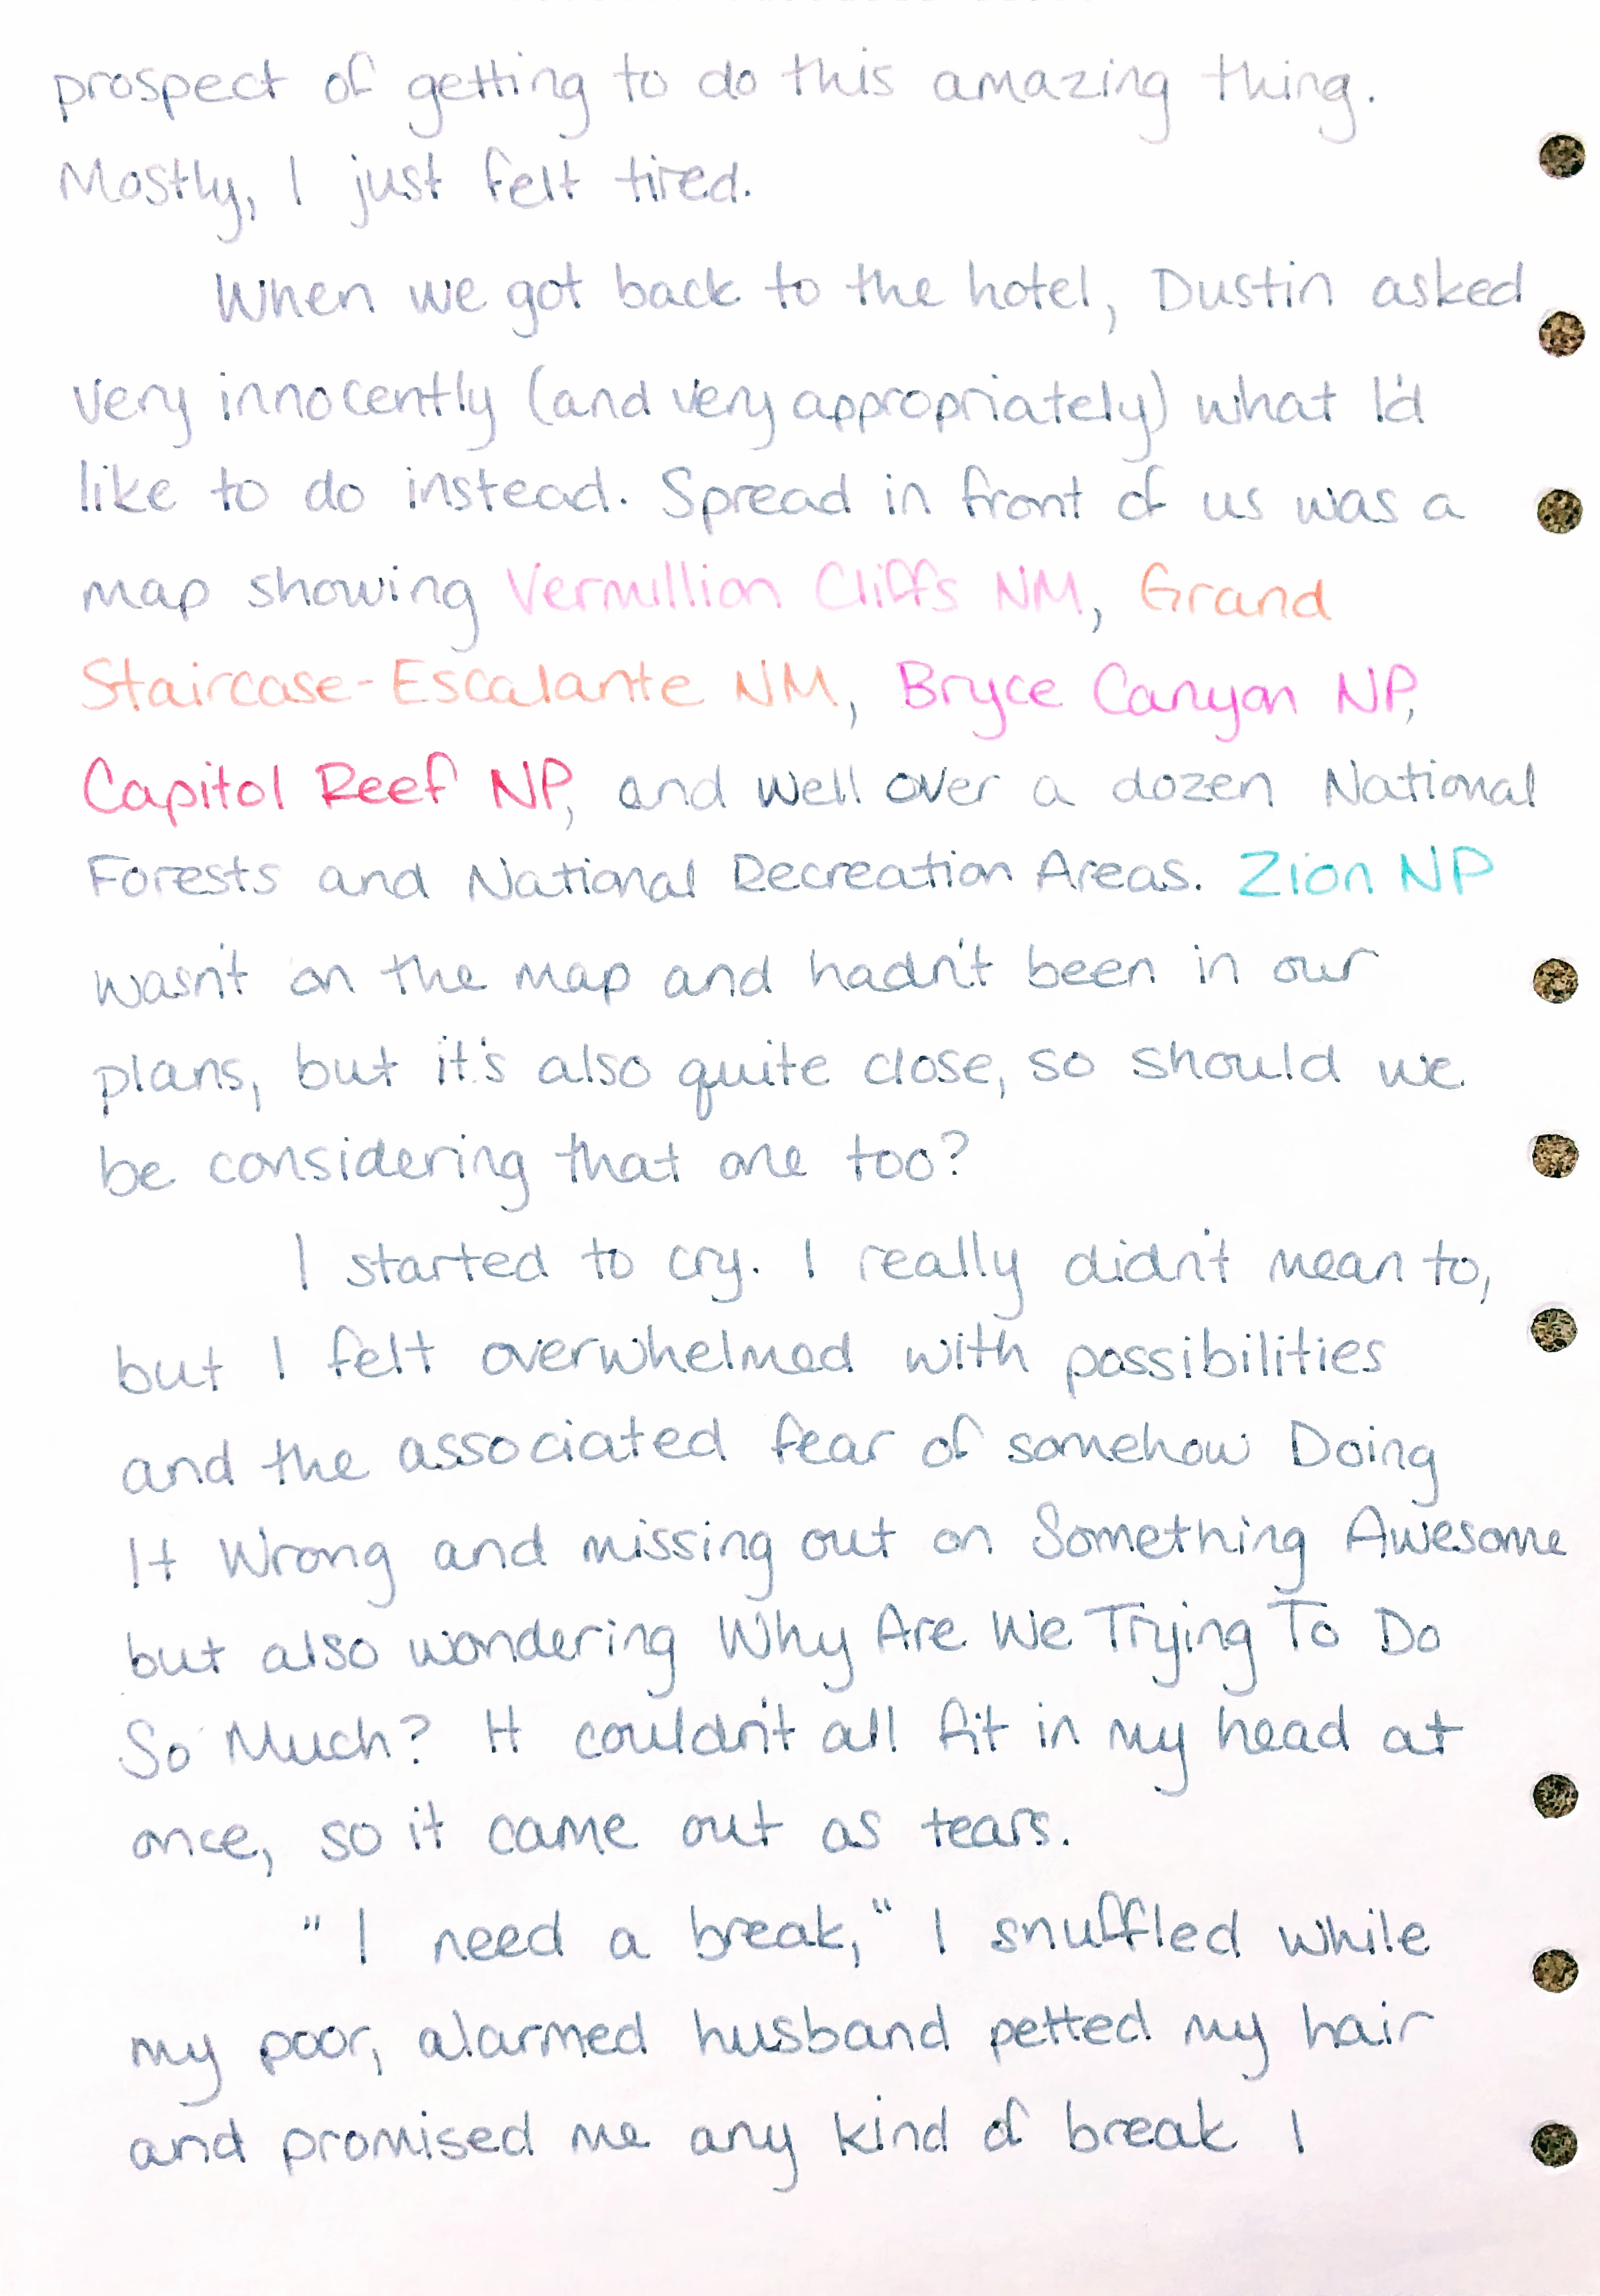 prospect of getting to do this amazing thing.
Mostly, I just felt tired.
When we got back to the hotel, Dustin asked
very innocently (and very appropriately) what I'd
like to do instead. Spread in front of us was a
map showing Vermillion Cliffs NM, Grand
Staircase-Escalante NM, Bryce Canyon NP,
Capitol Reef NP, and well over a dozen National
Forests and National Recreation Areas. Zion NP
wasn't on the map and hadn't been in our
plans, but it's also quite close, so should we
be considering that one too?
I started to cry. I really didn't mean to,
but I felt overwhelmed with possibilities
and the associated fear of somehow Doing
It Wrong and missing out on Something Awesome
but also wondering Why Are We Trying To Do
So Much? It couldn't all fit in my head at
once, so it came out as tears.
"I need a break," I snuffled while
my poor, alarmed husband petted my hair
and promised me any kind of break I